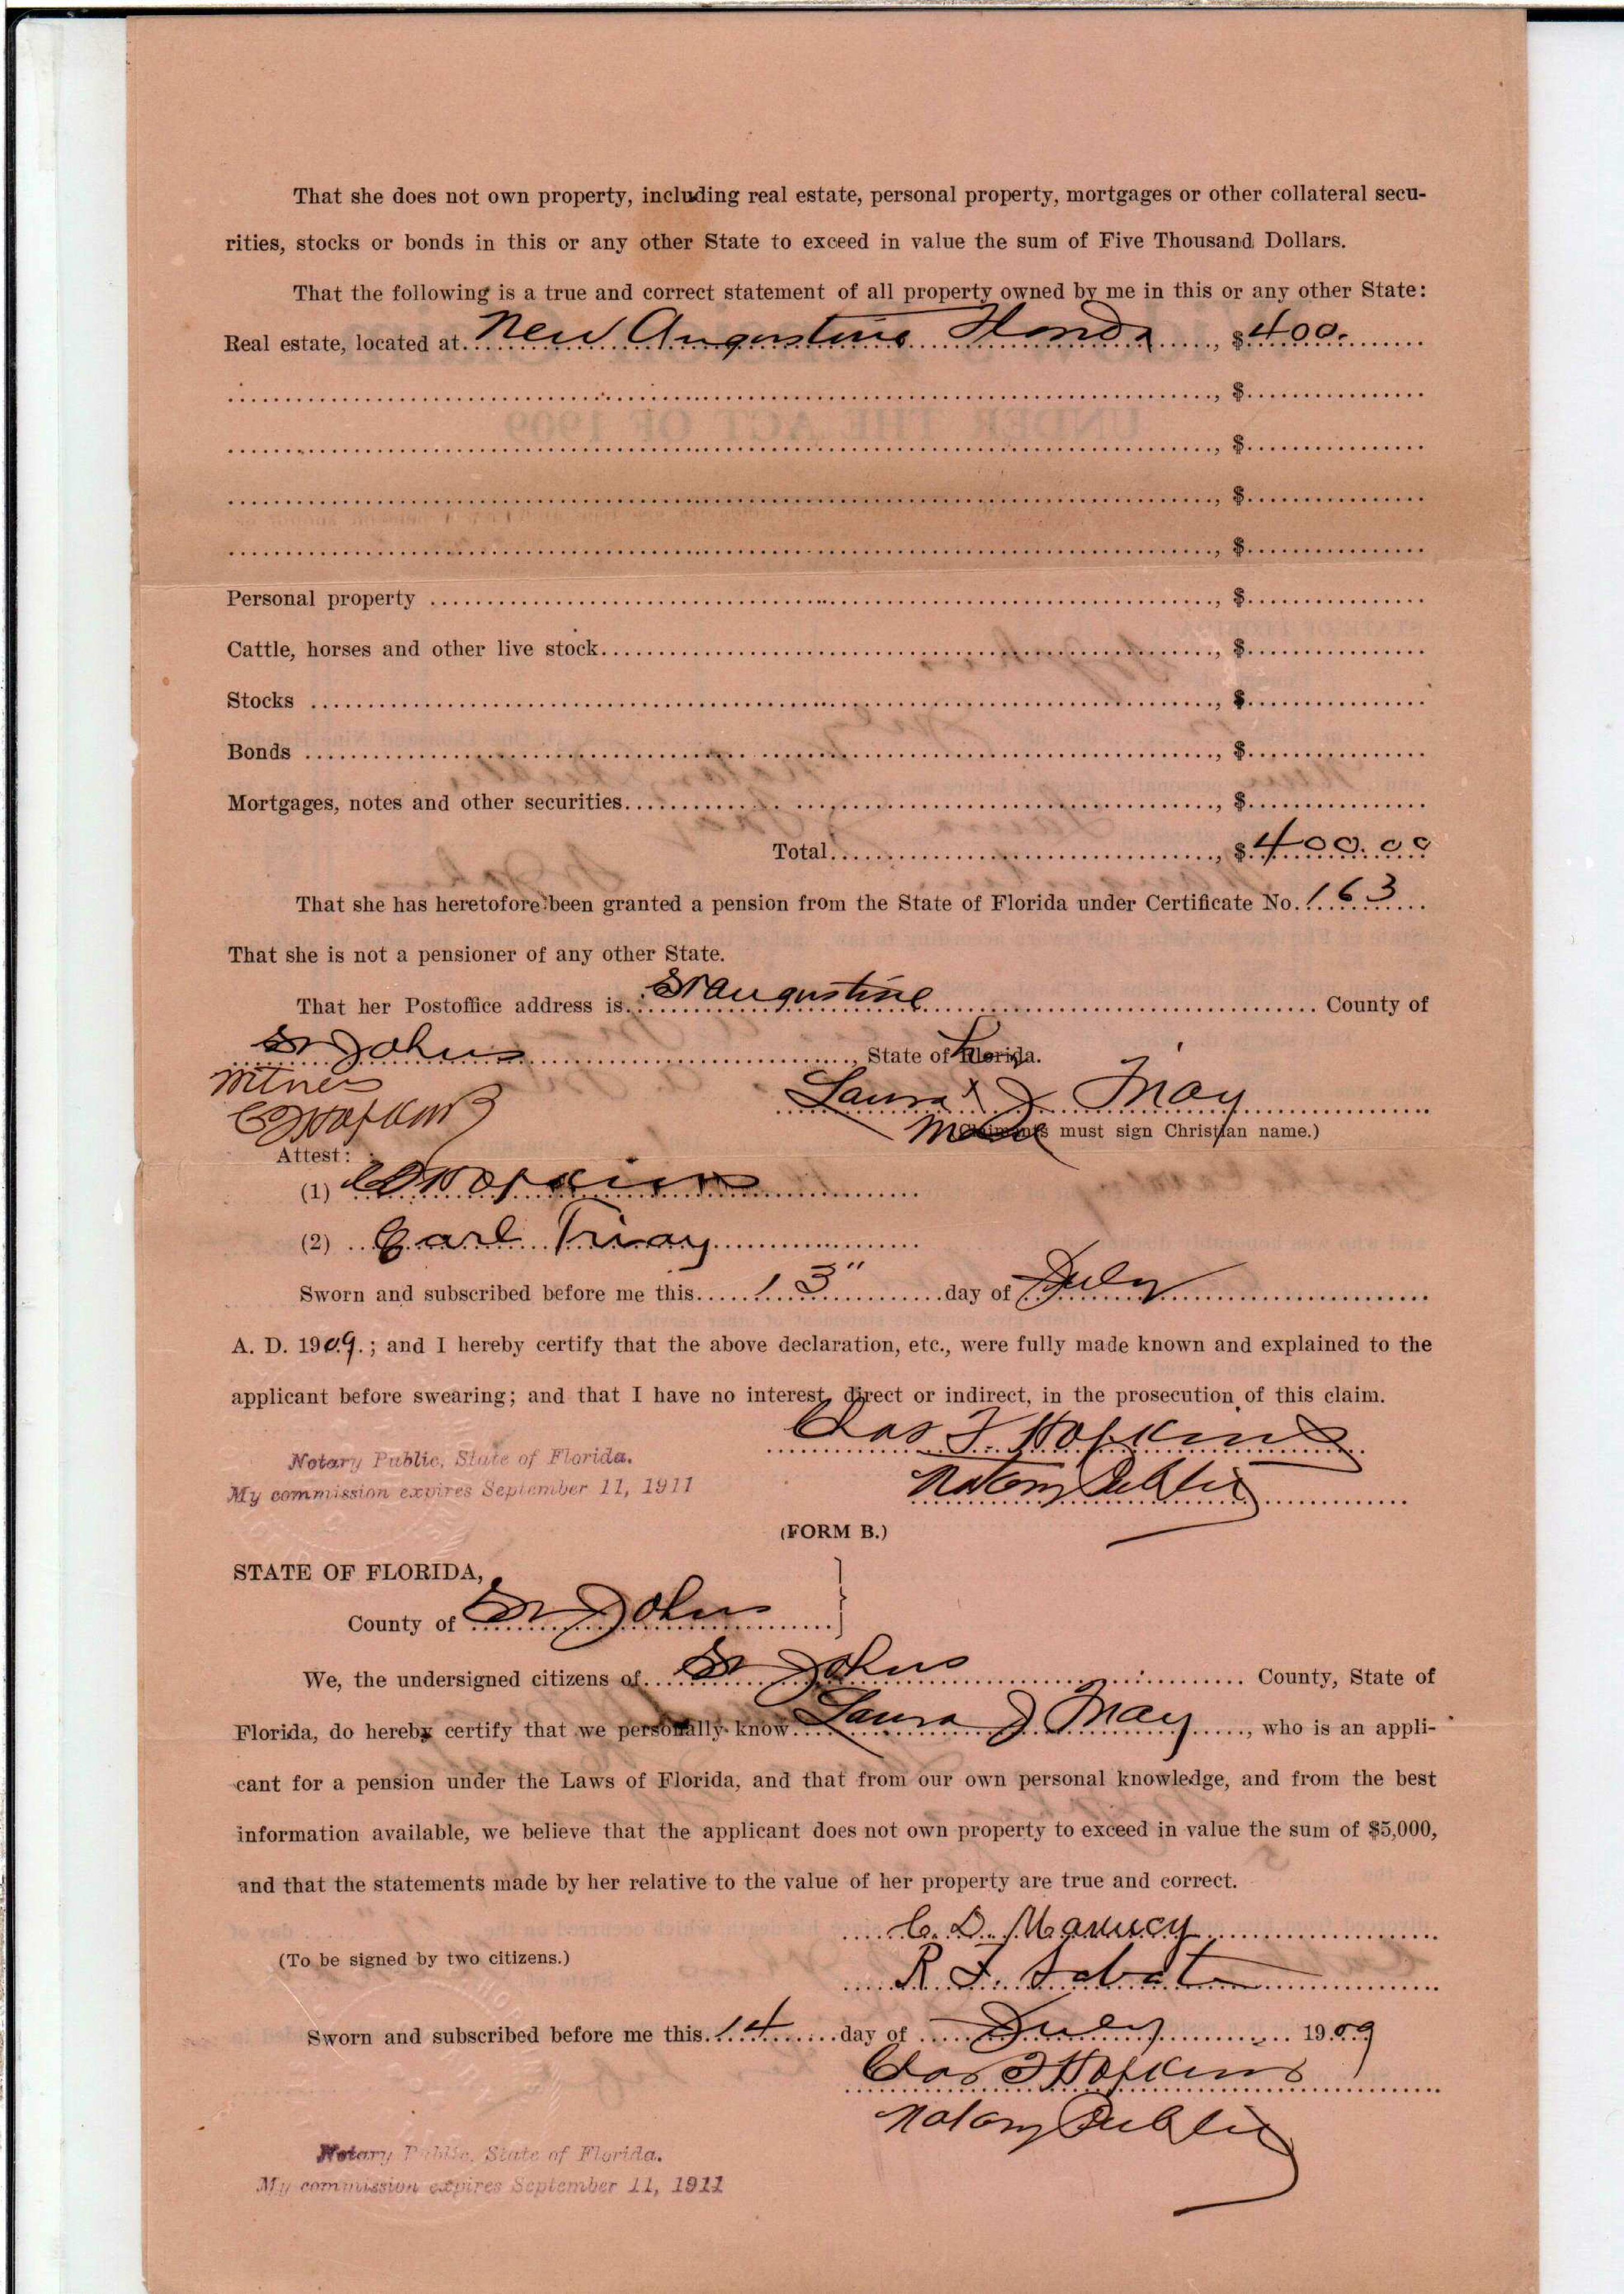 That she does not own property, including real estate, personal property, mortgages or other collateral secu-
rities, stocks or bonds in this or any other State to exceed in value the sum of Five Thousand Dollars.
That the following is a true and correct statement of all property owned by me in this or any other State:
Real estate, located at New Augustine Florida, $400.
, $
, $
, $
, $
Personal property, $
Cattle, horses and other live stock, $
Stocks, $
Bonds, $
Mortgages, notes and other securities, $
Total, $400.00
That she has heretofore been granted a pension from the State of Florida under Certificate No. 163
That she is not a pensioner of any other State.
That her Postoffice address is St Augustine County of
St Johns, State of Florida.
Witness
Laura x J May
(Claimants must sign Christian name.)
Attest:
(1) Hopkins
(2) Carl Triay
Sworn and subscribed before me this 13" day of July
A. D. 1909.; and I hereby certify that the above declaration, etc., were fully made known and explained to the
applicant before swearing; and that I have no interest, direct or indirect, in the prosecution of this claim.
Chas F Hopkins
Notary Public, State of Florida.
Notary Public
My commission expires September 11, 1911
(FORM B.)
STATE OF FLORIDA,
County of St Johns
We, the undersigned citizens of St Johns County, State of
Florida, do hereby certify that we personally know Laura J May, who is an appli-
cant for a pension under the Laws of Florida, and that from our own personal knowledge, and from the best
information available, we believe that the applicant does not own property to exceed in value the sum of $5,000,
and that the statements made by her relative to the value of her property are true and correct.
C. D. Manucy
(To be signed by two citizens.)
R. F. Sabate
Sworn and subscribed before me this 14 day of July 1909
Chas F Hopkins
Notary Public
Notary Public, State of Florida.
My commission expires September 11, 1911